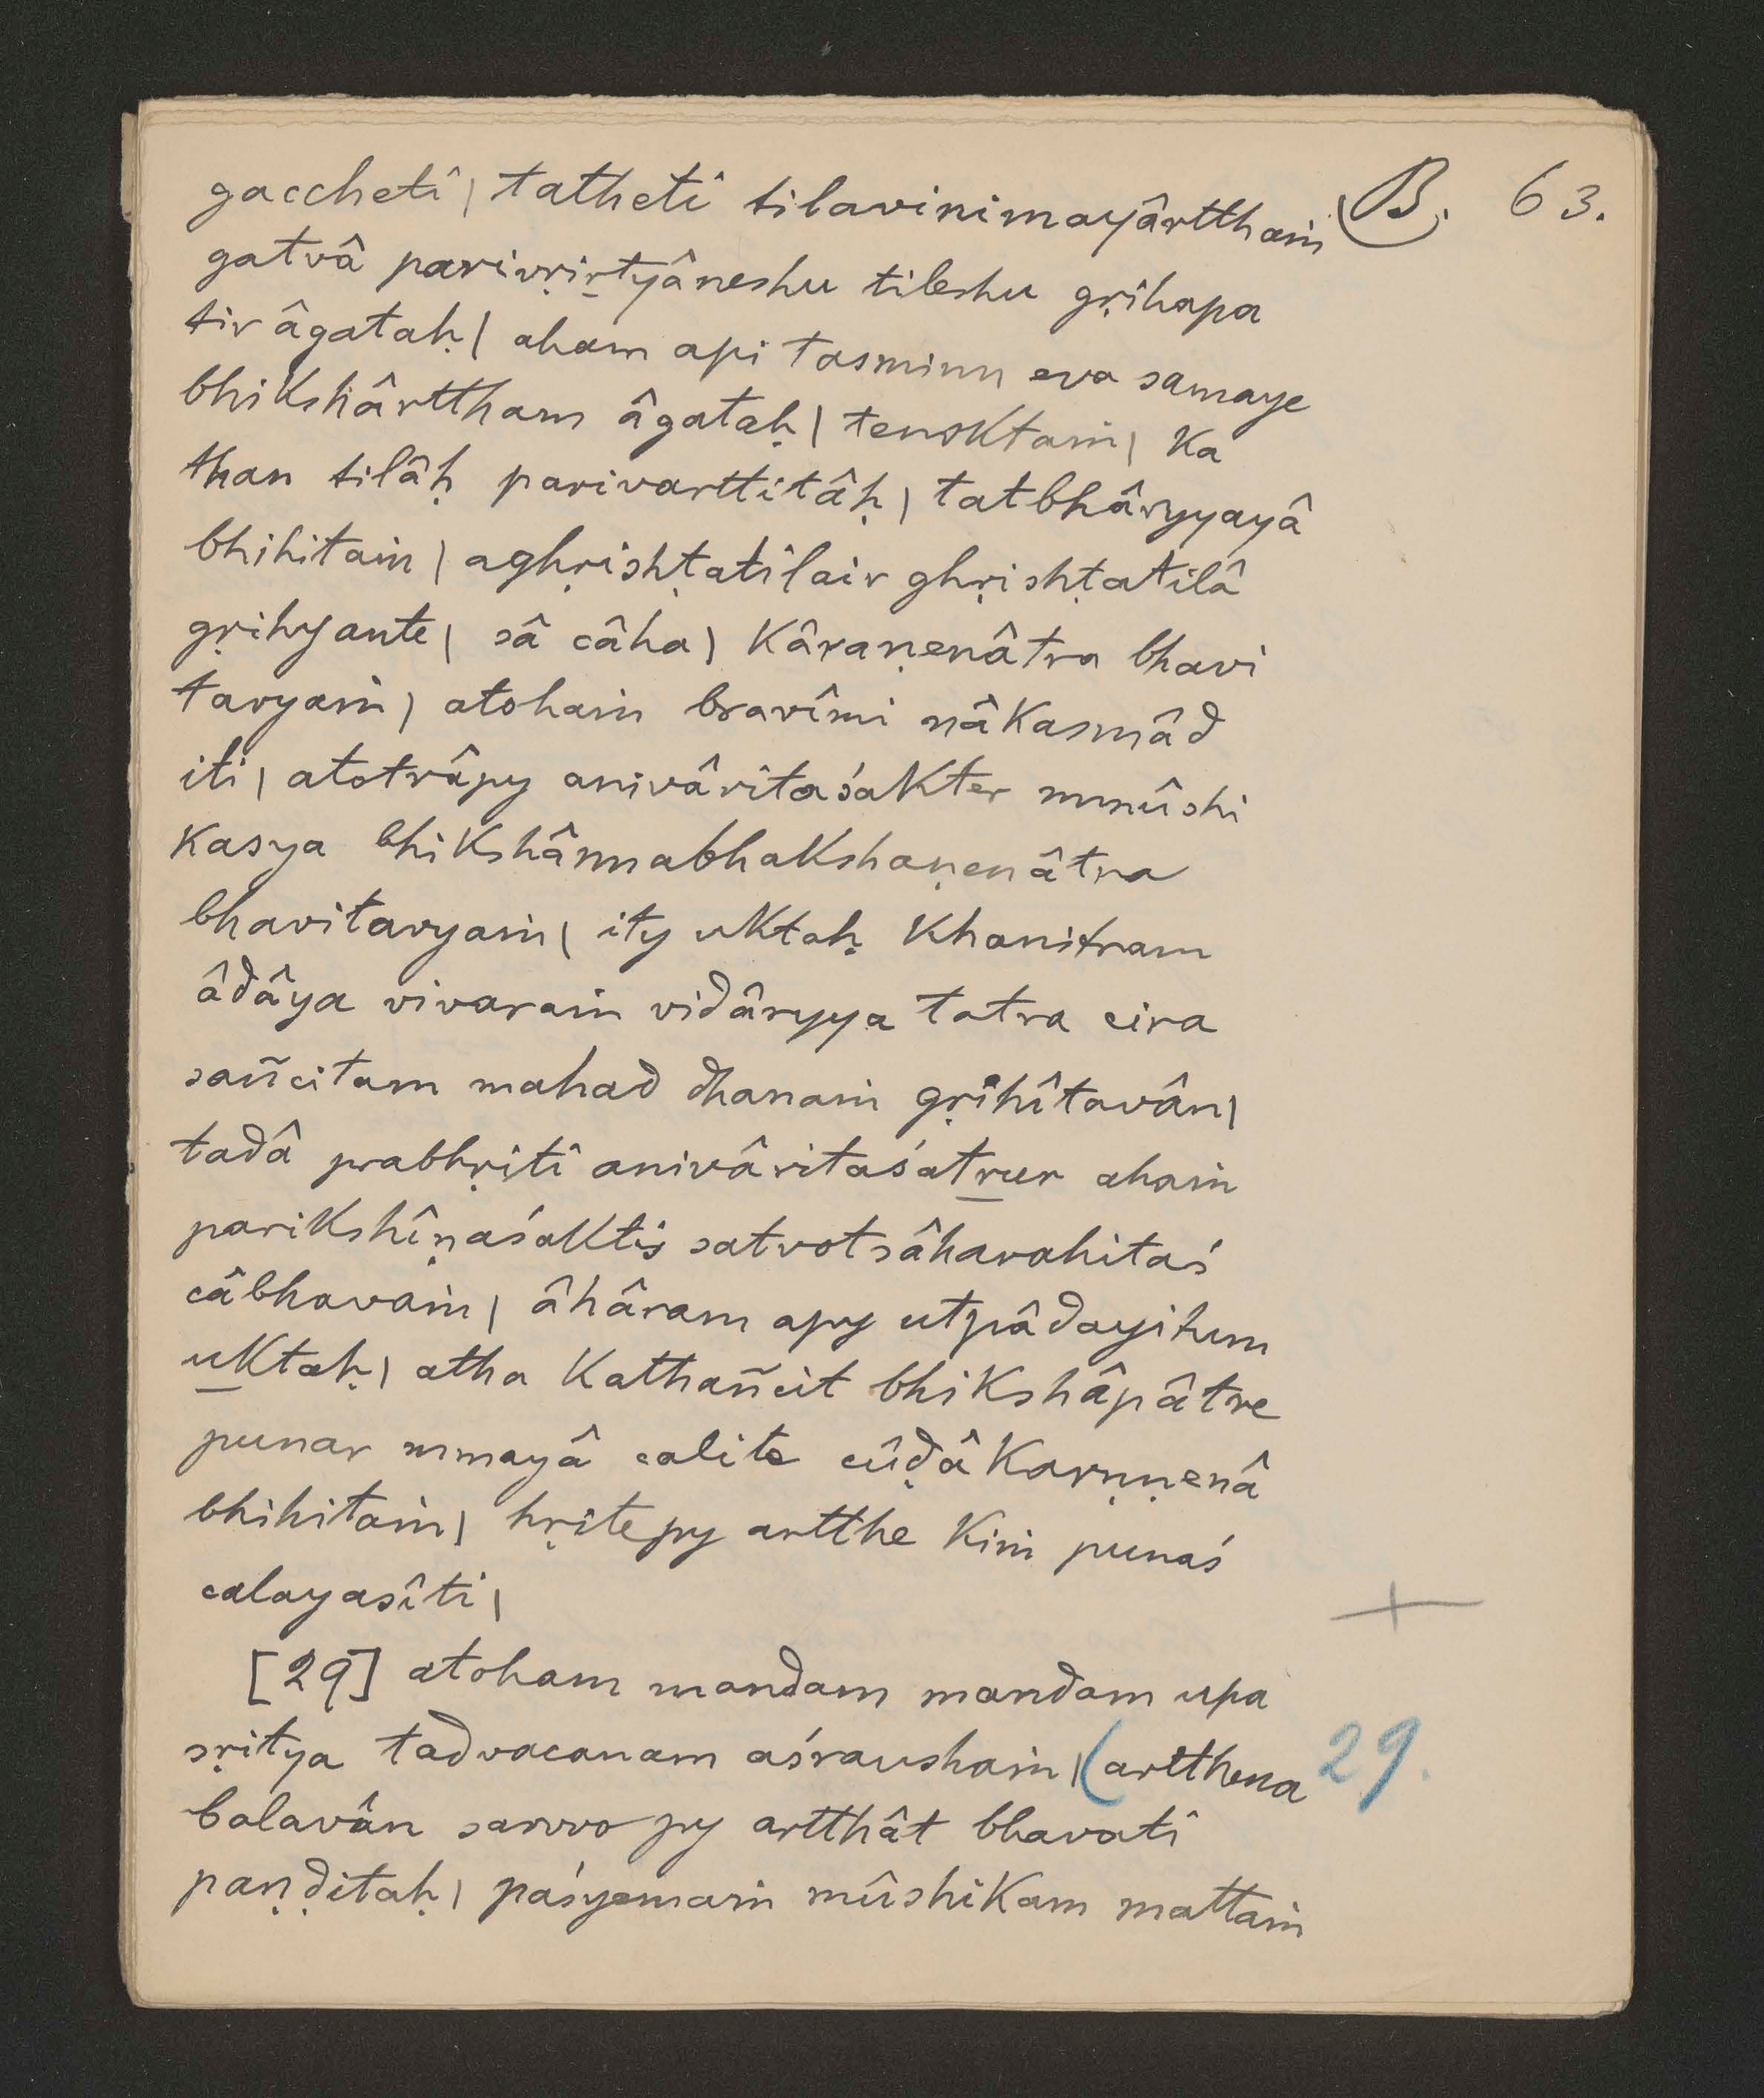 gaccheti | tatheti tilavinimayârtthaṁ B. 63.
gatvâ parivṛiṟtyâneshu tileshu gṛihapa
tir âgataḥ | aham api tasminn eva samaye
bhikshârttham âgataḥ | tenoktaṁ | ka
than tilâḥ parivarttitâḥ | tatbhâryyayâ
bhihitaṁ | aghṛishṭatilair ghṛishṭatilâ
gṛihyante | sâ câha | kâraṇenâtra bhavi
tavyaṁ | atohaṁ bravîmi nâkasmâd
iti | atotrâpy anivâritaśakter mmûshi
kasya bhikshânnabhakshaṇenâtra
bhavitavyaṁ | ity uktaḥ khanitram
âdâya vivaraṁ vidâryya tatra cira
sañcitam mahad dhanaṁ gṛihîtavân |
tadâ prabhṛiti anivâritaśatṟur ahaṁ
parikshîṇaśaktis satvotsâharahitaś
câbhavaṁ | âhâram apy utpâdayitum
uktaḥ | atha kathañcit bhikshâpâtre
punar mmayâ calite cûḍâkarṇṇenâ
bhihitaṁ | hṛitepy artthe kiṁ punaś
calayasîti |
[29] atoham mandam mandam upa
sṛitya tadvacanam aśraushaṁ | (artthena 29.
balavân sarvvo py artthât bhavati
paṇḍitaḥ | paśyemaṁ mûshikam mattaṁ